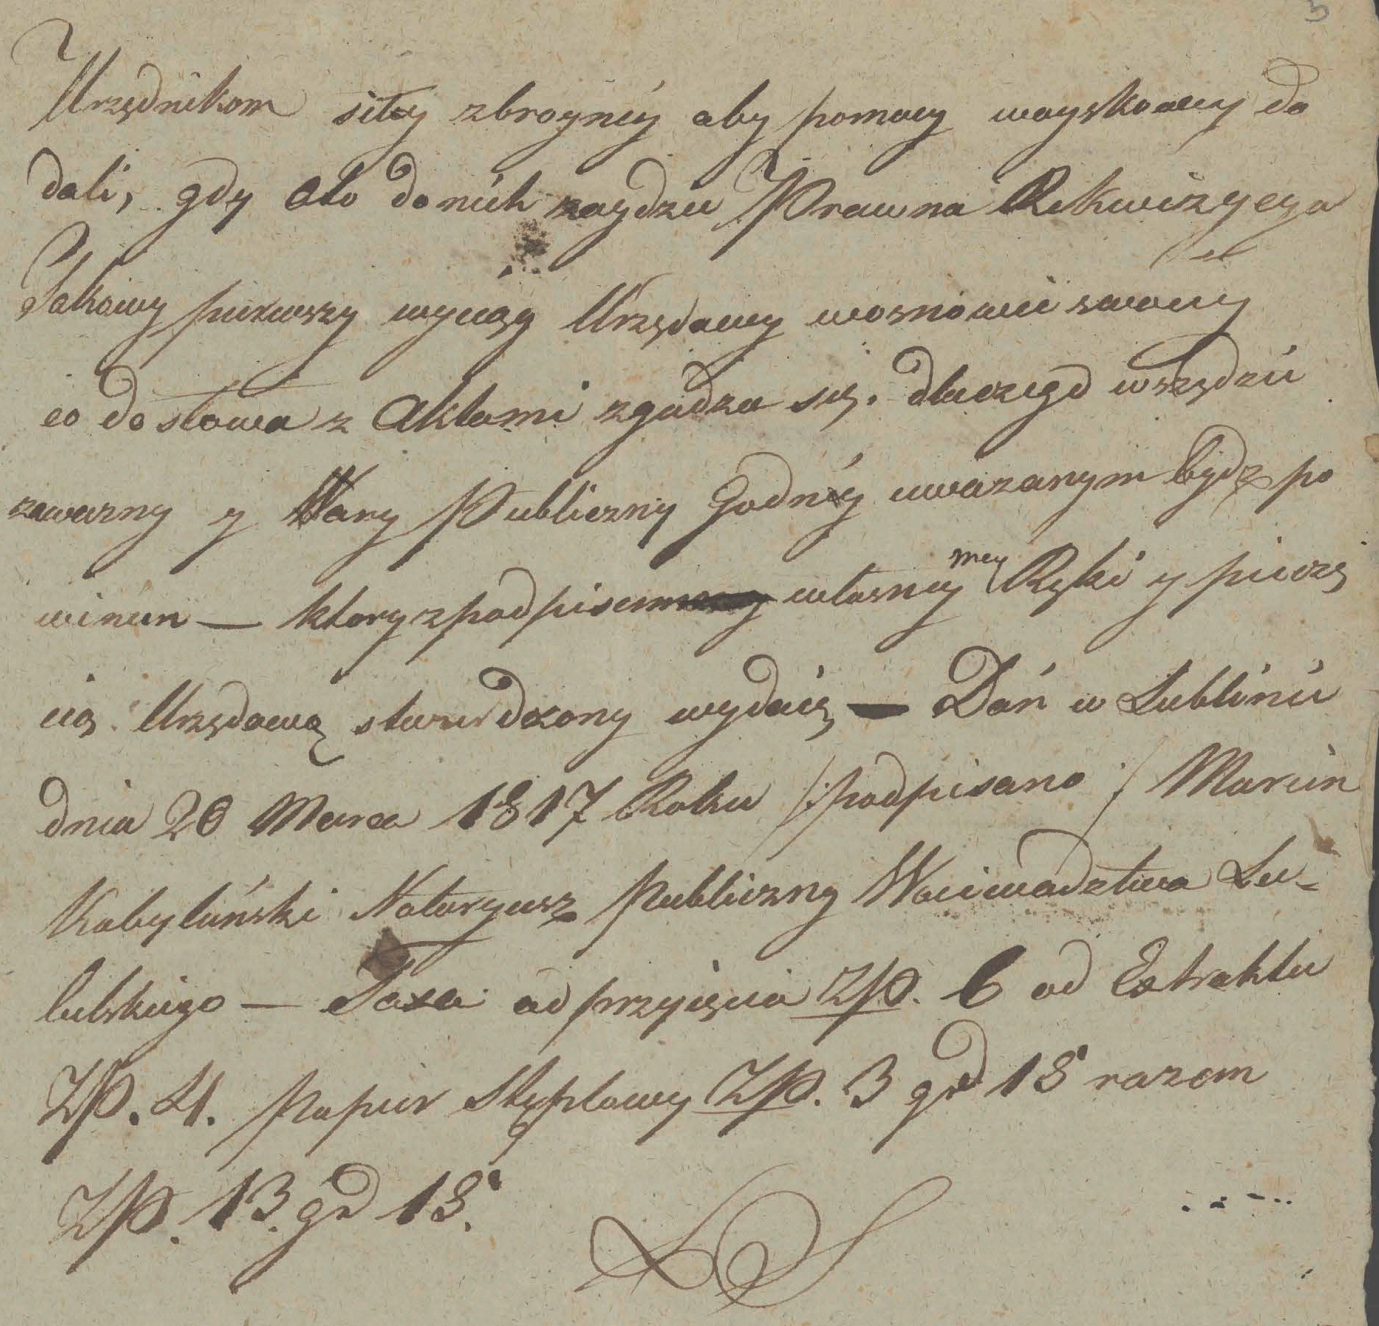 5
Urzędnikom siły zbroyney aby pomocy woyskowey do
dali, gdy oto do nich zaydzie Prawna Rekwizycya
Takowy pierwszy wyciąg Urzędowy w osnowie swoiey
co do słowa z Aktami zgadza się. dlaczego wszędzie
zawazny y Wary Publiczny Godney uwazanym bydz po
winien — ktory z podpisem własney mey Ręki y pieczę
cią Urzędową stwierdzony wydaię — Dan w Lublinie
dnia 20 Marca 1817 Roku /: podpisano :/ Marcin
Kobylański Notaryusz Publiczny Woiewodztwa Lu-
belskiego — Taxa od przyięcia Zło. 6 od Extraktu
Zło. 4. Papier Stęplowy Zło. 3 gr 18 razem
Zło. 13. gr 18.
L S